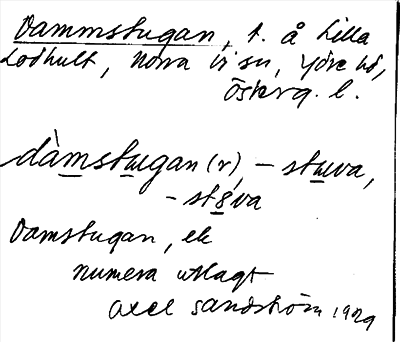 Dammstugan, t. å Lilla
Lodhult, Norra Vi sn, Ydre hd,
Österg. l.
dàmstugan (r), – stuva,
– st8va
Damstugan, ek
numera utlagt
Axel Sandström 1929